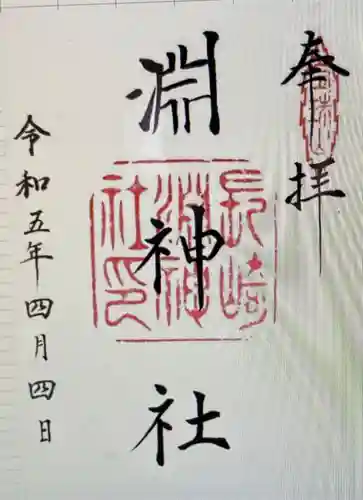 奉拝
淵神社
長崎
淵神
社印
令和五年四月四日